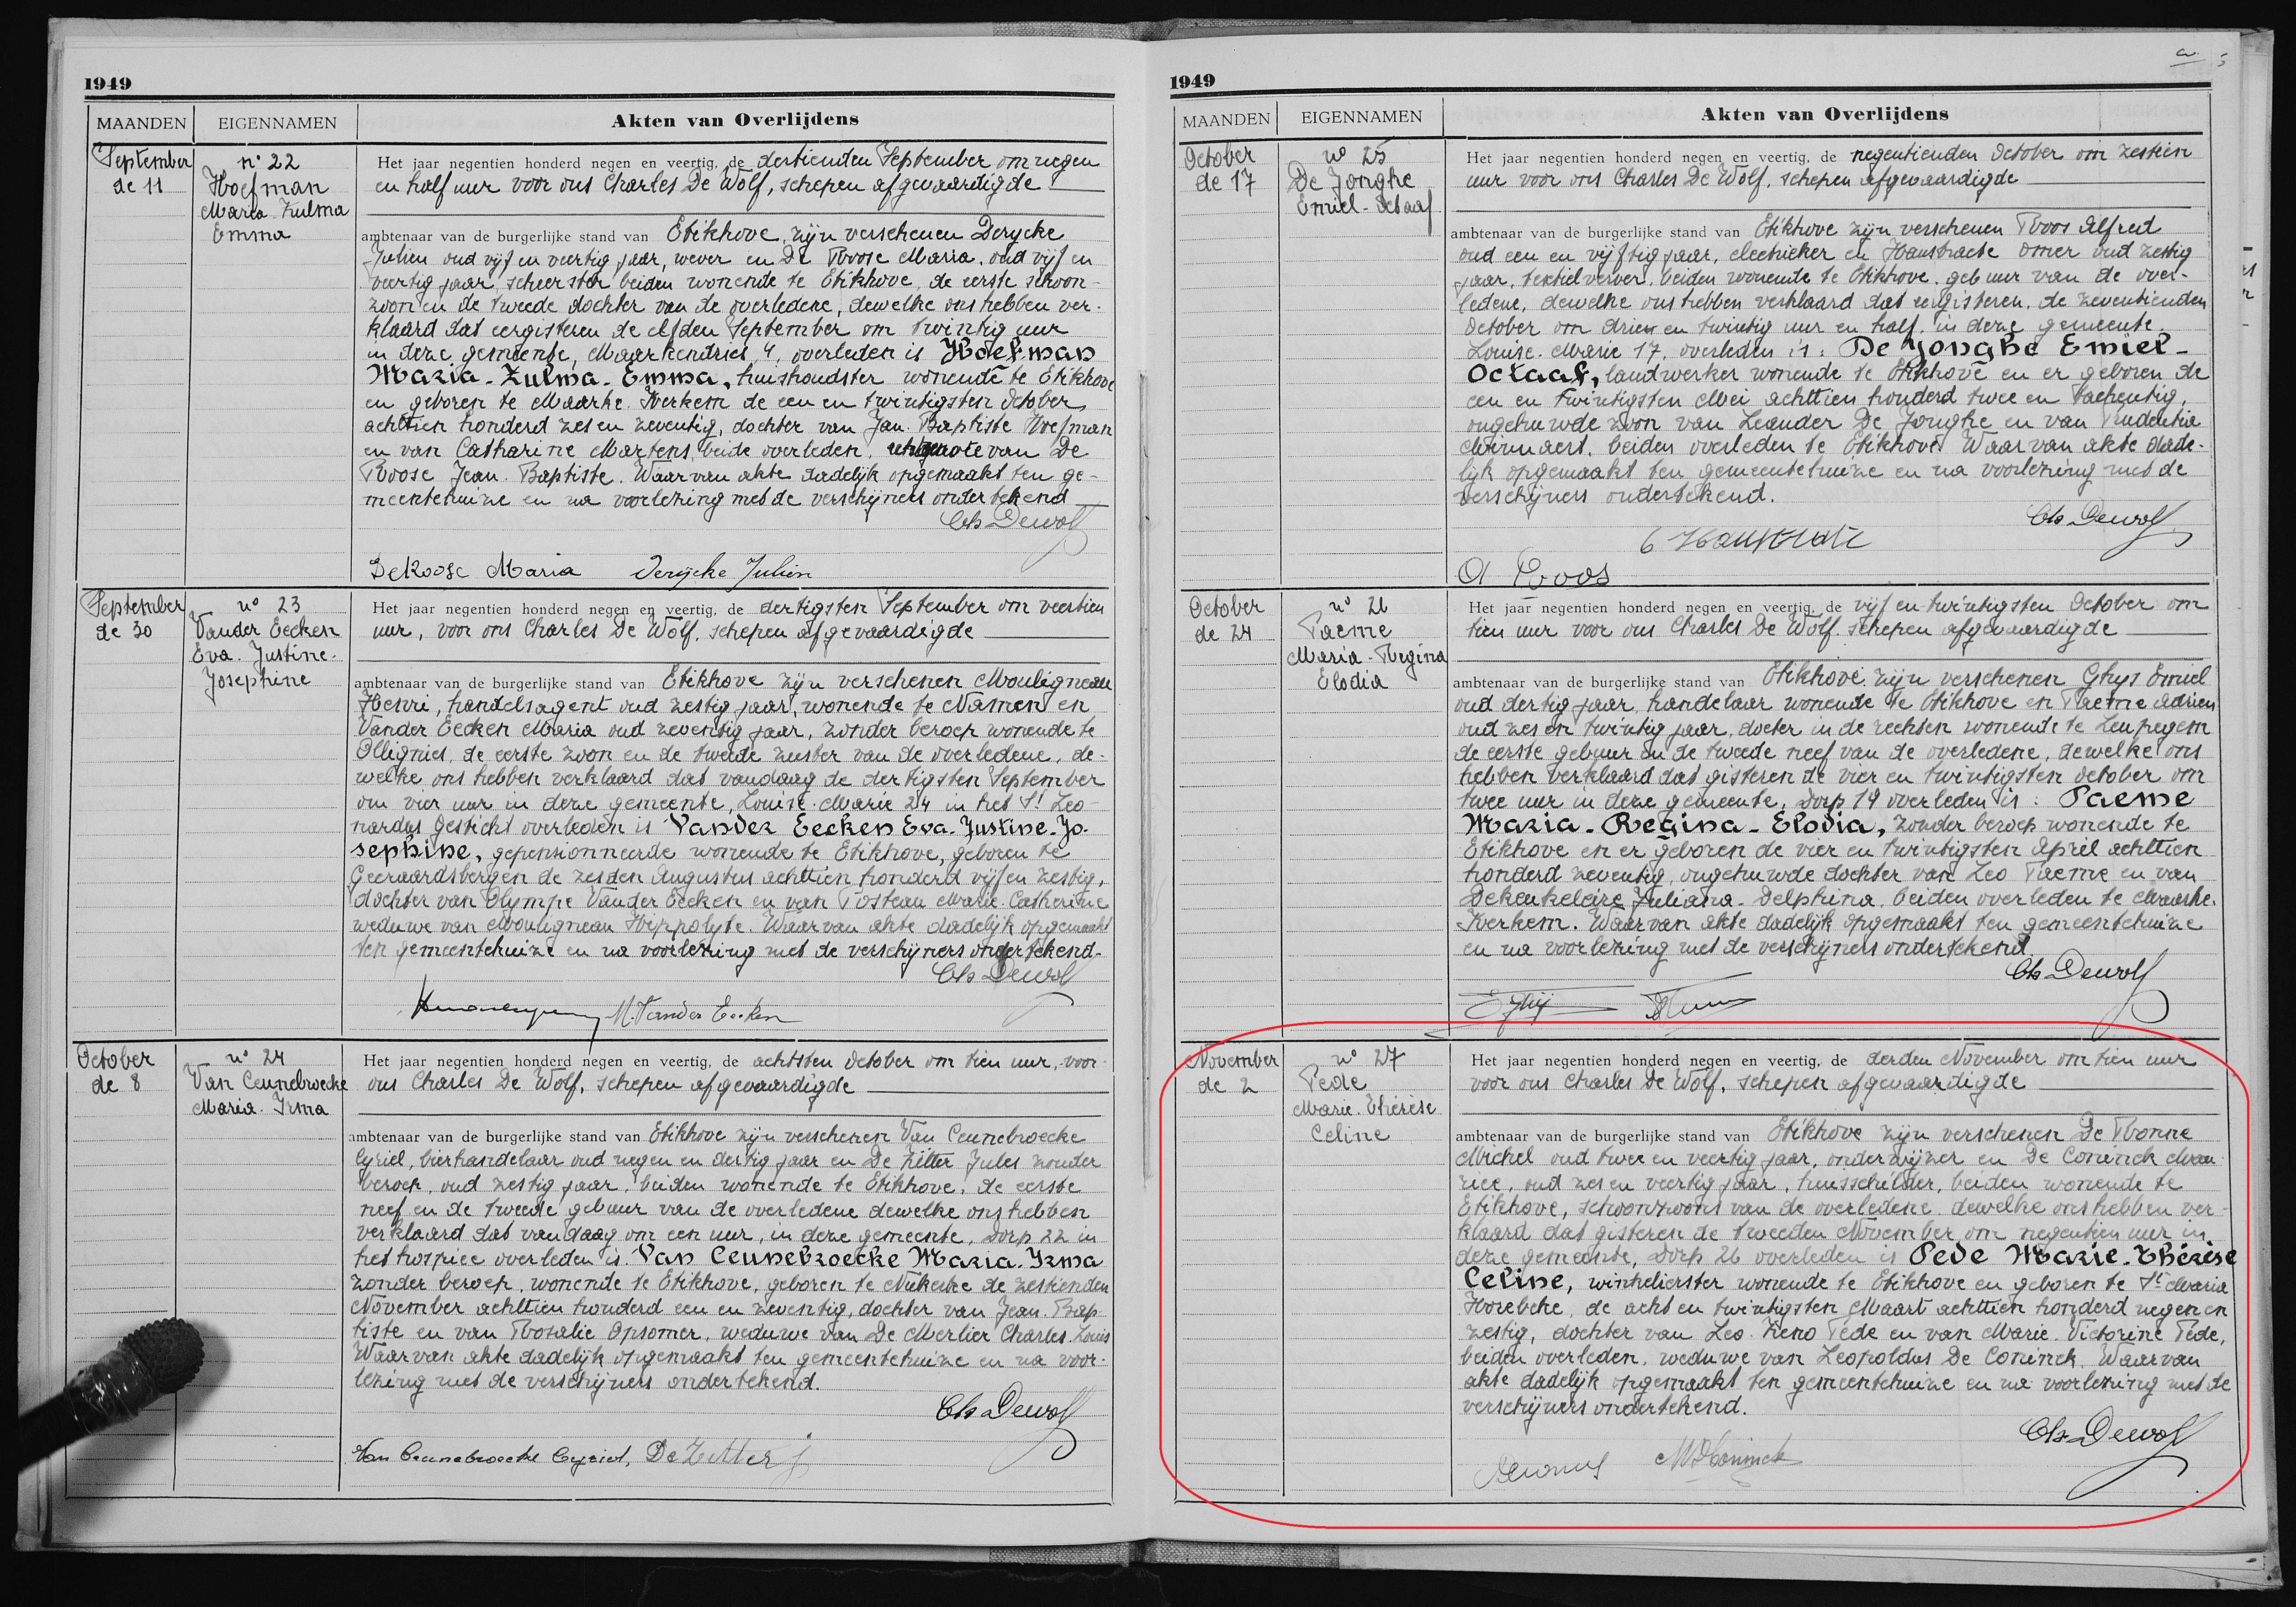 1949
MAANDEN
EIGENNAMEN
Akten van Overlijdens
September
de 11
n° 22
Hoefman
Maria Zulma
Emma
Het jaar negentien honderd negen en veertig, de dertienden September om negen
en half uur voor ons Charles De Wolf, schepen afgevaardigde
ambtenaar van de burgerlijke stand van Etikhove, zijn verschenen Derycke
Julien oud vijf en veertig jaar, wever en De Roose Maria, oud vijf en
veertig jaar, scheerster beiden wonende te Etikhove, de eerste schoon-
zoon en de tweede dochter van de overledene, dewelke ons hebben ver-
klaard dat eergisteren de elfden September om twintig uur
in deze gemeente, Maarkendries, 4, overleden is Hoefman
Maria-Zulma-Emma, huishoudster wonende te Etikhove
en geboren te Maarke-Kerkem de een en twintigsten October
achttien honderd zes en zeventig, dochter van Jan-Baptiste Hoefman
en van Catharine Martens, beide overleden, echtgenote van De
Roose Jean-Baptiste. Waarvan akte dadelijk opgemaakt ten ge-
meentehuize en na voorlezing met de verschijners ondertekend
Ch. Dewolf
DeRoose Maria Derijcke Julien
September
de 30
n° 23
Vander Eecken
Eva-Justine-
Josephine
Het jaar negentien honderd negen en veertig, de dertigsten September om veertien
uur, voor ons Charles De Wolf, schepen afgevaardigde
ambtenaar van de burgerlijke stand van Etikhove zijn verschenen Mouligneau
Henri, handelsagent oud zestig jaar, wonende te Namen en
Vander Eecken Maria oud zeventig jaar, zonder beroep wonende te
Ollignies, de eerste zoon en de tweede zuster van de overledene, de-
welke ons hebben verklaard dat vandaag de dertigsten September
om vier uur in deze gemeente, Louise-Marie 24 in het St Leo-
nardus gesticht overleden is Vander Eecken Eva-Justine-Jo-
sephine, gepensionneerde wonende te Etikhove, geboren te
Geeraardsbergen de zesden Augustus achttien honderd vijf en zestig,
dochter van Olympe Vander Eecken en van Posteau Marie-Catherine
weduwe van Mouligneau Hippolyte. Waarvan akte dadelijk opgemaakt
ten gemeentehuize en na voorlezing met de verschijners ondertekend.
Ch. Dewolf
M. Vander Eecken
October
de 8
n° 24
Van Ceunebroecke
Maria-Irma
Het jaar negentien honderd negen en veertig, de achtsten October om tien uur, voor
ons Charles De Wolf, schepen afgevaardigde
ambtenaar van de burgerlijke stand van Etikhove zijn verschenen Van Ceunebroecke
Cyriel, bierhandelaar oud negen en dertig jaar en De Zitter Jules zonder
beroep, oud zestig jaar, beiden wonende te Etikhove, de eerste
neef en de tweede gebuur van de overledene dewelke ons hebben
verklaard dat vandaag om een uur, in deze gemeente, Dorp 22 in
het hospice overleden is Van Ceunebroecke Maria-Irma
zonder beroep, wonende te Etikhove, geboren te Nukerke de zestienden
November achttien honderd een en zeventig, dochter van Jean-Bap-
tiste en van Rosalie Opsomer, weduwe van De Merlier Charles-Louis
Waarvan akte dadelijk opgemaakt ten gemeentehuize en na voor-
lezing met de verschijners ondertekend.
Ch. Dewolf
Van Ceunebroecke Cyriel, De Zitter J
1949
MAANDEN
EIGENNAMEN
Akten van Overlijdens
October
de 17
n° 25
De Jonghe
Emiel-Octaaf
Het jaar negentien honderd negen en veertig, de negentienden October om zestien
uur voor ons Charles De Wolf, schepen afgevaardigde
ambtenaar van de burgerlijke stand van Etikhove zijn verschenen Roos Alfred
oud een en vijftig jaar, electrieker en Haustraete Omer oud zestig
jaar, textielverver, beiden wonende te Etikhove, gebuur van de over-
ledene, dewelke ons hebben verklaard dat eergisteren, de zeventienden
October om drie en twintig uur en half, in deze gemeente,
Louise-Marie 17, overleden is: De Jonghe Emiel-
Octaaf, landwerker wonende te Etikhove en er geboren de
een en twintigsten Mei achttien honderd twee en tachentig,
ongehuwde zoon van Leander De Jonghe en van Prudentia
beiden overleden te Etikhove. Waarvan akte dade-
lijk opgemaakt ten gemeentehuize en na voorlezing met de
verschijners ondertekend.
Ch. Dewolf
O Haustraete
A Roos
October
de 24
n° 26
Paeme
Maria-Regina
Elodia
Het jaar negentien honderd negen en veertig, de vijf en twintigsten October om
tien uur voor ons Charles De Wolf, schepen afgevaardigde
ambtenaar van de burgerlijke stand van Etikhove zijn verschenen Ghys Emiel
oud dertig jaar, handelaar wonende te Etikhove en Paeme Adrien
oud zes en twintig jaar, doctor in de rechten wonende te Leupegem
de eerste gebuur en de tweede neef van de overledene, dewelke ons
hebben verklaard dat gisteren de vier en twintigsten October om
twee uur in deze gemeente, Dorp 19 overleden is: Paeme
Maria-Regina-Elodia, zonder beroep wonende te
Etikhove en er geboren de vier en twintigsten April achttien
honderd zeventig, ongehuwde dochter van Leo Paeme en van
Dekeukeleire Juliana-Delphina, beiden overleden te Maarke-
Kerkem. Waarvan akte dadelijk opgemaakt ten gemeentehuize
en na voorlezing met de verschijners ondertekend.
Ch. Dewolf
November
de 2
n° 27
Pede
Marie-Thérèse
Celine
Het jaar negentien honderd negen en veertig, de derden November om tien uur
voor ons Charles De Wolf, schepen afgevaardigde
ambtenaar van de burgerlijke stand van Etikhove zijn verschenen De Ronne
Michel oud twee en veertig jaar, onderwijzer en De Coninck Mau-
rice, oud zes en veertig jaar, huisschilder, beiden wonende te
Etikhove, schoonzoons van de overledene, dewelke ons hebben ver-
klaard dat gisteren de tweeden November om negentien uur in
deze gemeente, Dorp 26 overleden is Pede Marie-Thérèse
Celine, winkelierster wonende te Etikhove en geboren te St Maria
Horebeke, de acht en twintigsten Maart achttien honderd negen en
zestig, dochter van Leo-Zeno Pede en van Marie-Victorine Pede,
beiden overleden, weduwe van Leopoldus De Coninck. Waarvan
akte dadelijk opgemaakt ten gemeentehuize en na voorlezing met de
verschijners ondertekend.
Ch. Dewolf
MDConinck